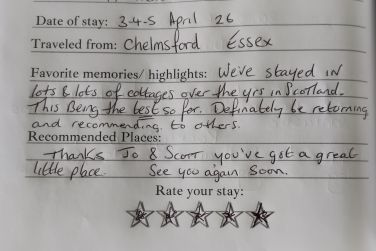 Date of stay: 3-4-5 April 26
Traveled from: Chelmsford Essex
Favorite memories/ highlights: We've stayed in
lots & lots of cottages over the yrs in Scotland.
This Being the best so far. Definately be returning
and recommending to others.
Recommended Places:
Thanks Jo & Scott you've got a great
little place. See you again soon.
Rate your stay: